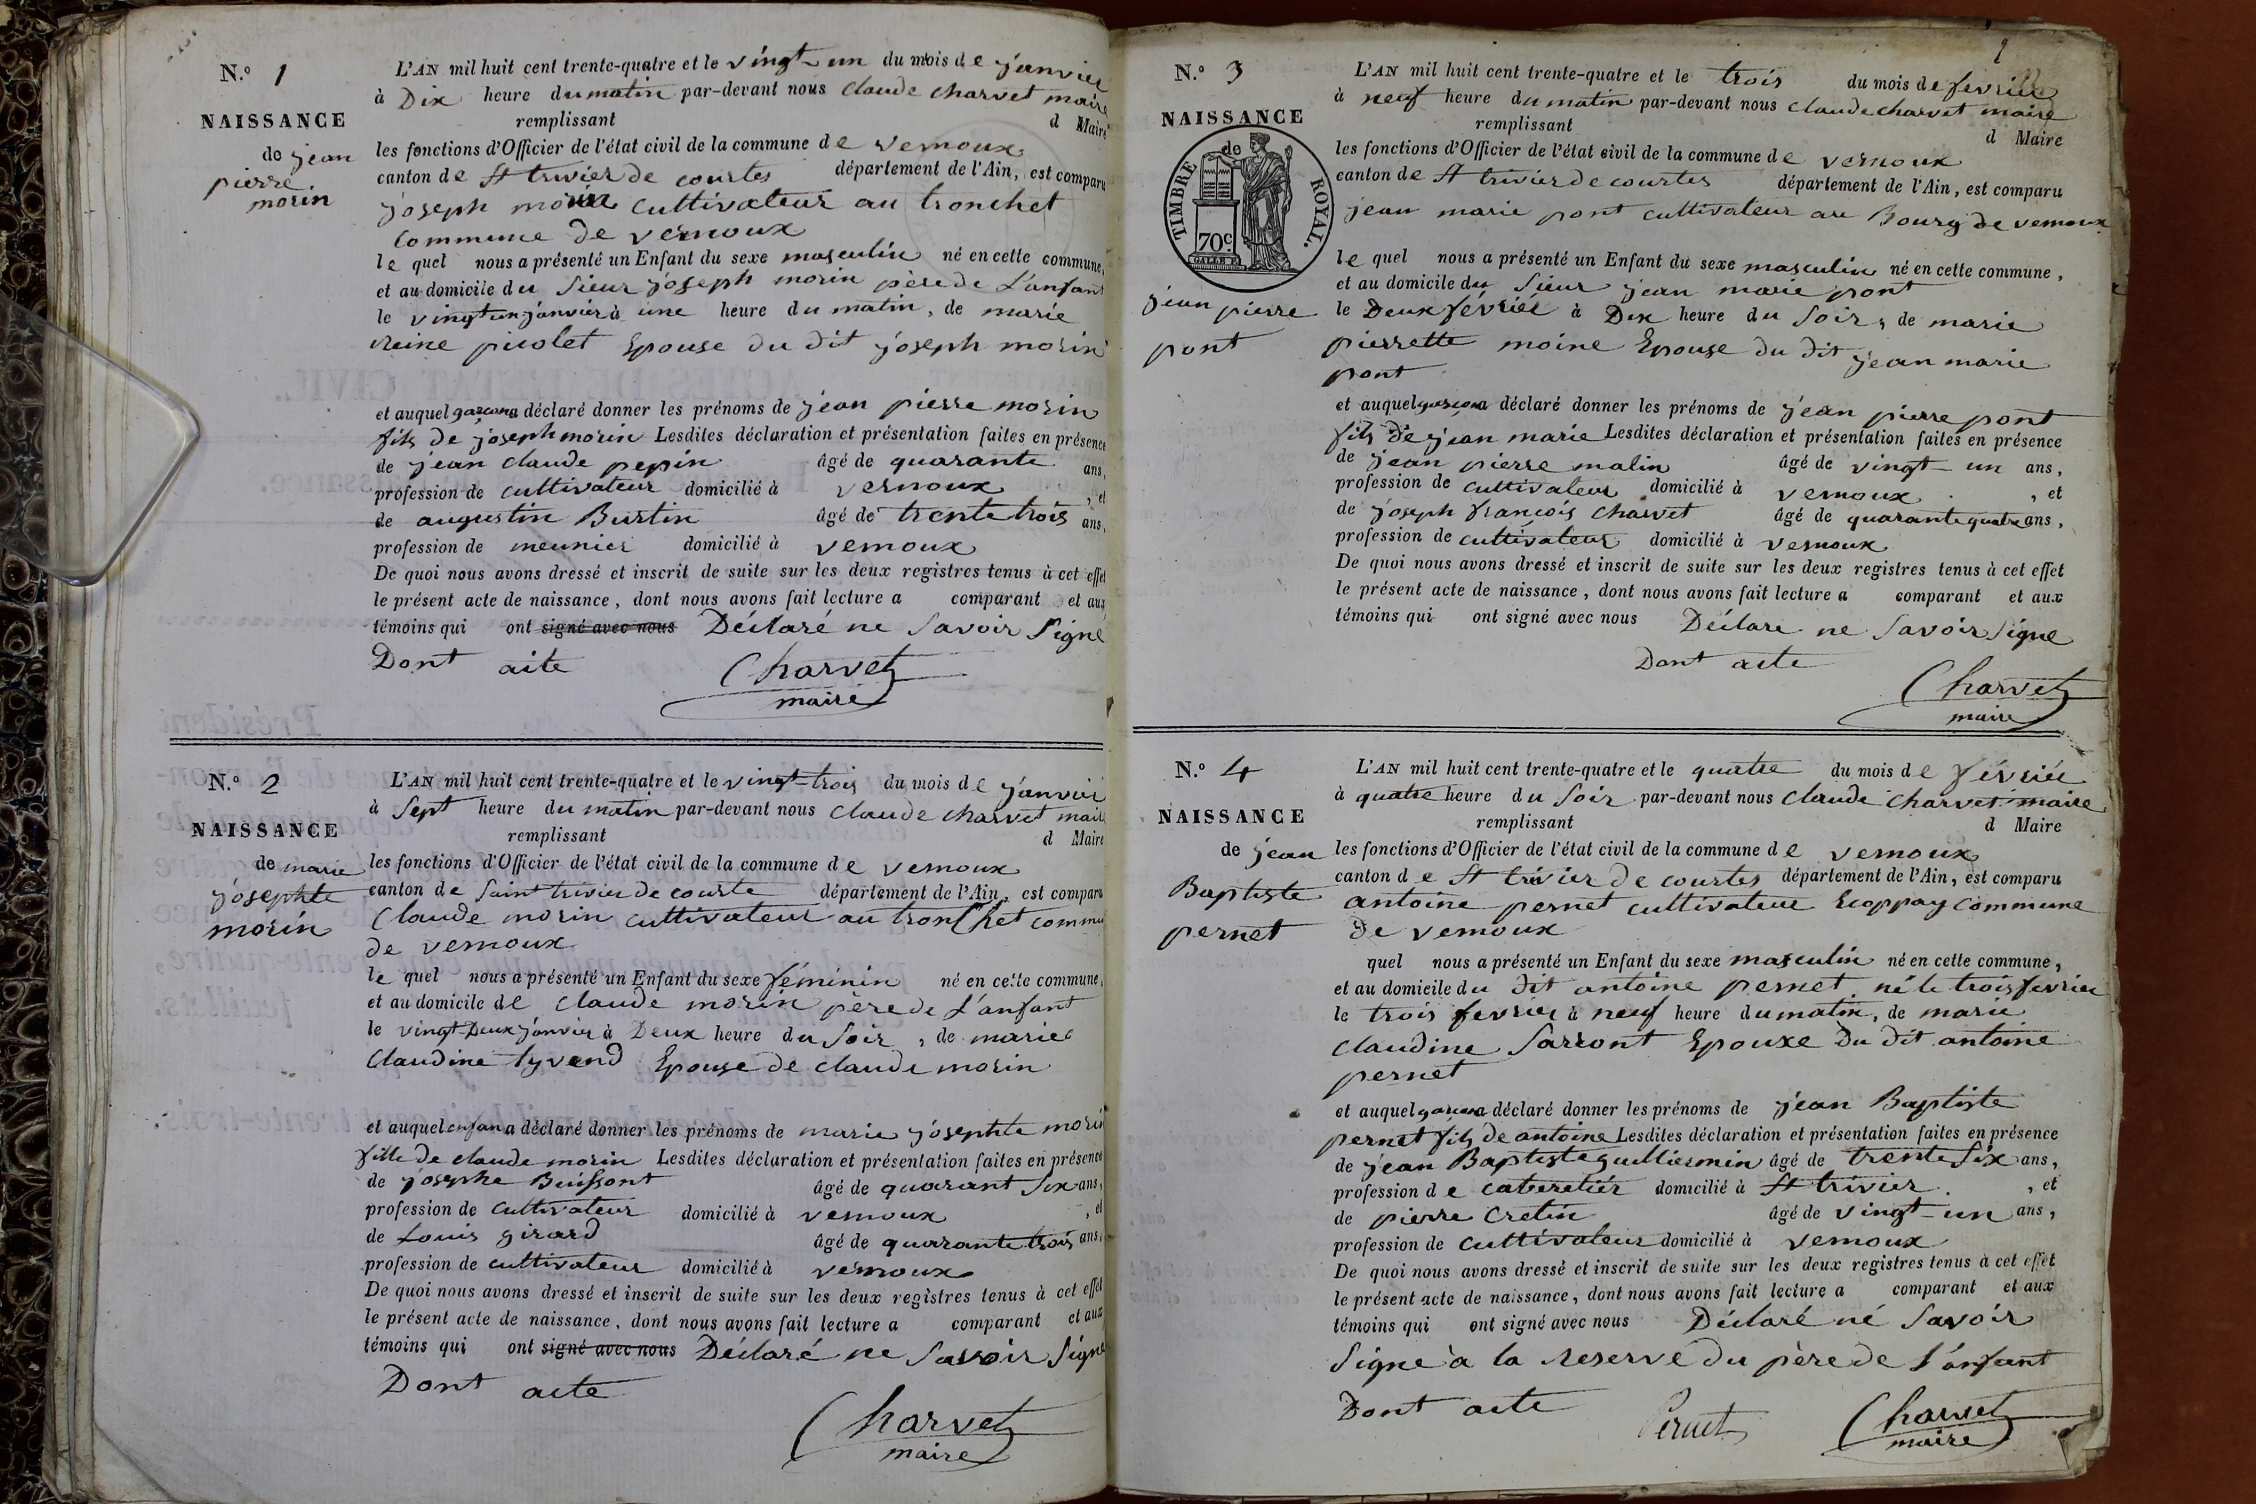 N.º 1
NAISSANCE
de jean
pierre
morin
L'AN mil huit cent trente-quatre et le vingt-un du mois de janvier
à Dix heure du matin par-devant nous Claude Charvet maire
remplissant d Maire
les fonctions d'Officier de l'état civil de la commune de vernoux
canton de St trivier de courtes département de l'Ain, est comparu
joseph morin cultivateur au tronchet
commune de vernoux
le quel nous a présenté un Enfant du sexe masculin né en cette commune,
et au domicile du Sieur joseph morin père de L'anfant
le vingt un janvier à une heure du matin, de marie
reine picolet Epouse du dit joseph morin
et auquel garcon a déclaré donner les prénoms de jean pierre morin
fils de joseph morin Lesdites déclaration et présentation faites en présence
de jean claude pepin âgé de quarante ans,
profession de cultivateur domicilié à vernoux , et
de augustin Burtin âgé de trente trois ans,
profession de meunier domicilié à vernoux
De quoi nous avons dressé et inscrit de suite sur les deux registres tenus à cet effet
le présent acte de naissance, dont nous avons fait lecture a comparant et aux
témoins qui ont signé avec nous Déclaré ne Savoir Signe
Dont acte
Charvet
maire
N.º 2
NAISSANCE
de marie
josephte
morin
L'AN mil huit cent trente-quatre et le vingt-trois du mois de janvier
à Sept heure du matin par-devant nous Claude Charvet maire
remplissant d Maire
les fonctions d'Officier de l'état civil de la commune de vernoux
canton de Saint trivier de courte département de l'Ain, est comparu
Claude morin cultivateur au tronchet commu
de vernoux
le quel nous a présenté un Enfant du sexe féminin né en cette commune,
et au domicile de claude morin père de L'anfant
le vingt Deux janvier à Deux heure du Soir , de marie
Claudine tyvend Epouse de claude morin
et auquel enfan a déclaré donner les prénoms de marie josephte morin
fille de claude morin Lesdites déclaration et présentation faites en présence
de josephe Buissont âgé de quarant Six ans,
profession de cultivateur domicilié à vernoux , et
de Louis girard âgé de quarante trois ans,
profession de cultivateur domicilié à vernoux
De quoi nous avons dressé et inscrit de suite sur les deux registres tenus à cet effet
le présent acte de naissance, dont nous avons fait lecture a comparant et aux
témoins qui ont signé avec nous Déclaré ne Savoir Signe
Dont acte
Charvet
maire
N.º 3
NAISSANCE
de
TIMBRE ROYAL.
70c.
jean pierre
pont
L'AN mil huit cent trente-quatre et le trois du mois de fevrier
à neuf heure du matin par-devant nous claude charvet maire
remplissant d Maire
les fonctions d'Officier de l'état civil de la commune de vernoux
canton de St trivier de courtes département de l'Ain, est comparu
jean marie pont cultivateur au Bourg de vernoux
le quel nous a présenté un Enfant du sexe masculin né en cette commune,
et au domicile du Sieur jean marie pont
le Deux février à Dix heure du Soir, de marie
pierrette moine Epouse du dit jean marie
pont
et auquel garcon a déclaré donner les prénoms de jean pierre pont
fils de jean marie Lesdites déclaration et présentation faites en présence
de jean pierre malin âgé de vingt-un ans,
profession de cultivateur domicilié à vernoux , et
de joseph françois charvet âgé de quarante quatre ans,
profession de cultivateur domicilié à vernoux
De quoi nous avons dressé et inscrit de suite sur les deux registres tenus à cet effet
le présent acte de naissance, dont nous avons fait lecture a comparant et aux
témoins qui ont signé avec nous Déclare ne Savoir Signe
Dont acte
Charvet
maire
N.º 4
NAISSANCE
de jean
Baptiste
pernet
L'AN mil huit cent trente-quatre et le quatre du mois de février
à quatre heure du Soir par-devant nous Claude Charvet maire
remplissant d Maire
les fonctions d'Officier de l'état civil de la commune de vernoux
canton de St trivier de courtes département de l'Ain, est comparu
antoine pernet cultivateur Ecoppay commune
de vernoux
quel nous a présenté un Enfant du sexe masculin né en cette commune,
et au domicile du dit antoine pernet né le trois fevrier
le trois fevrier à neuf heure du matin, de marie
claudine Sarront Epouxe Du dit antoine
pernet
et auquel garcon a déclaré donner les prénoms de jean Baptiste
pernet fils de antoine Lesdites déclaration et présentation faites en présence
de jean Baptiste guilliermin âgé de trente Six ans,
profession de cabaretiér domicilié à St trivier , et
de pierre Cretin âgé de vingt-un ans,
profession de cultivateur domicilié à vernoux
De quoi nous avons dressé et inscrit de suite sur les deux registres tenus à cet effet
le présent acte de naissance, dont nous avons fait lecture a comparant et aux
témoins qui ont signé avec nous Déclaré né Savoir
Signe à la reserve du père de L'anfant
Dont acte
Pernet
Charvet
maire